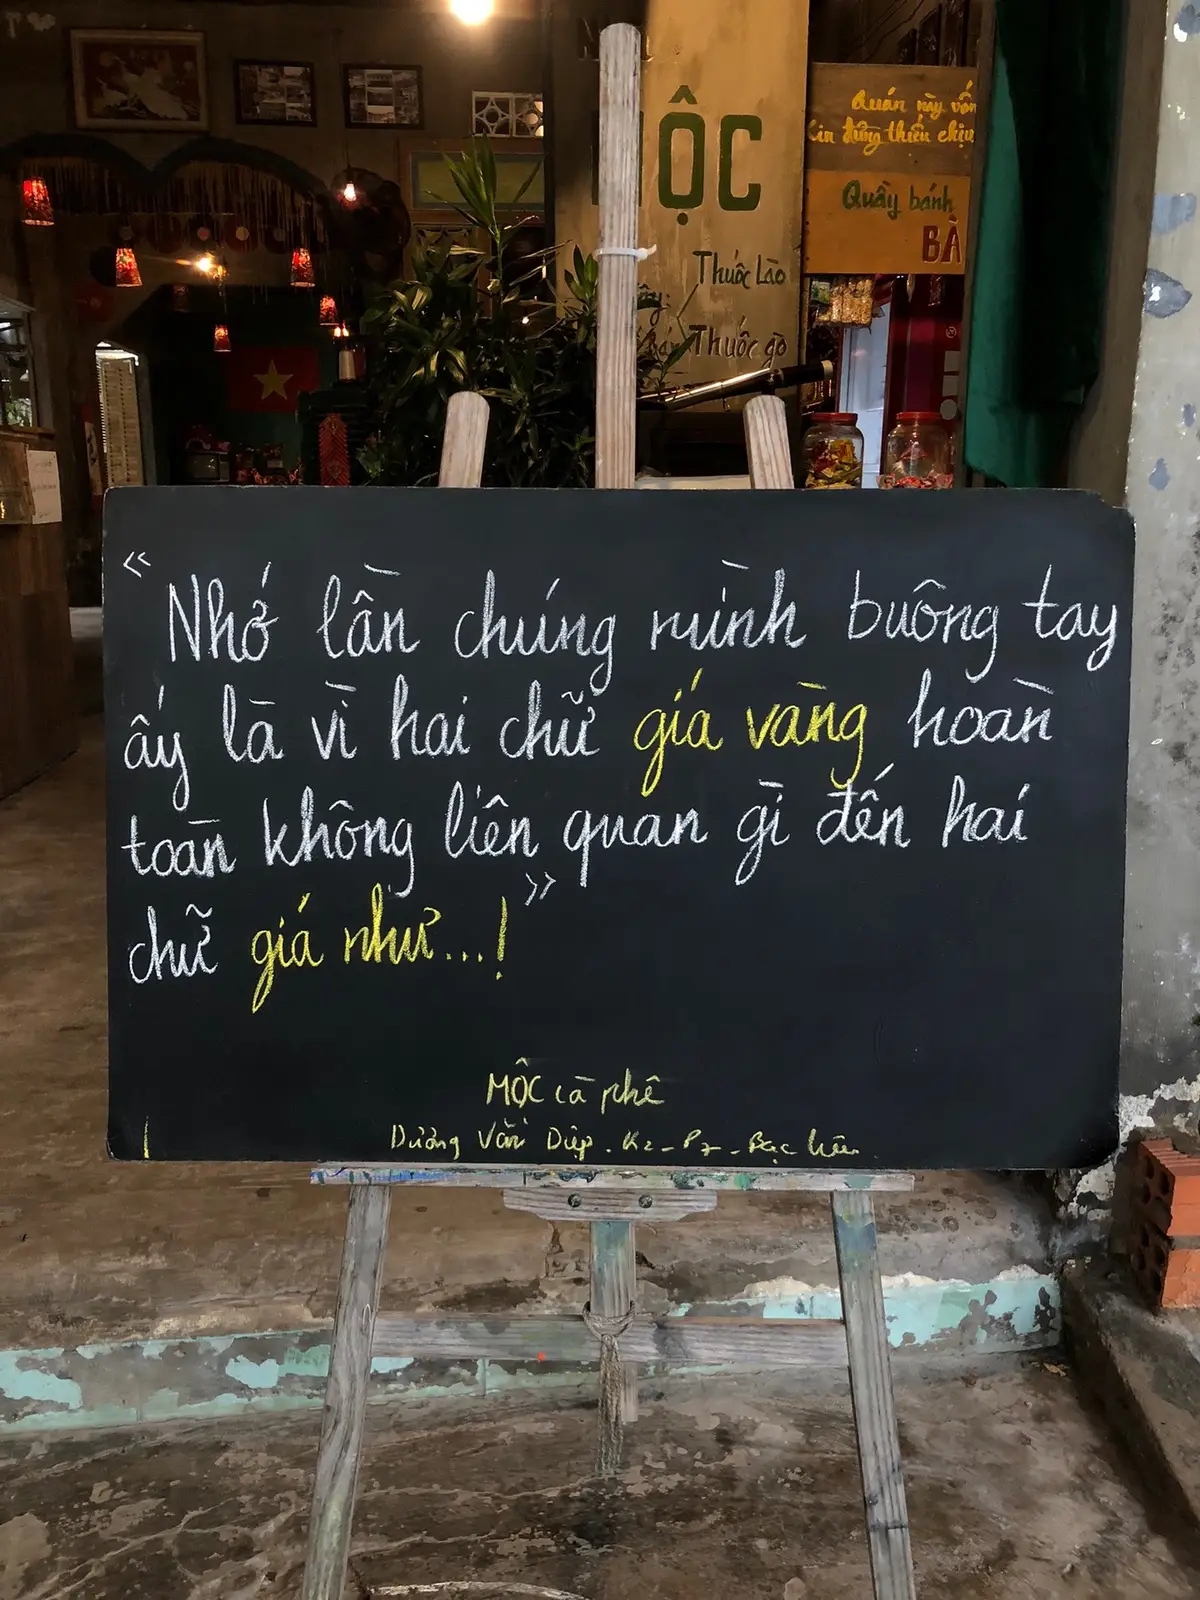 MỘC
Thuốc Lào
Thuốc gò
Quán này vốn
Xin đừng thiếu chịu
Quầy bánh
BÀ
« Nhớ lần chúng mình buông tay
ấy là vì hai chữ giá vàng hoàn
toàn không liên quan gì đến hai
chữ giá như...! »
MỘC cà phê
Dương Văn Diệp . K2 - P7 - Bạc Liêu